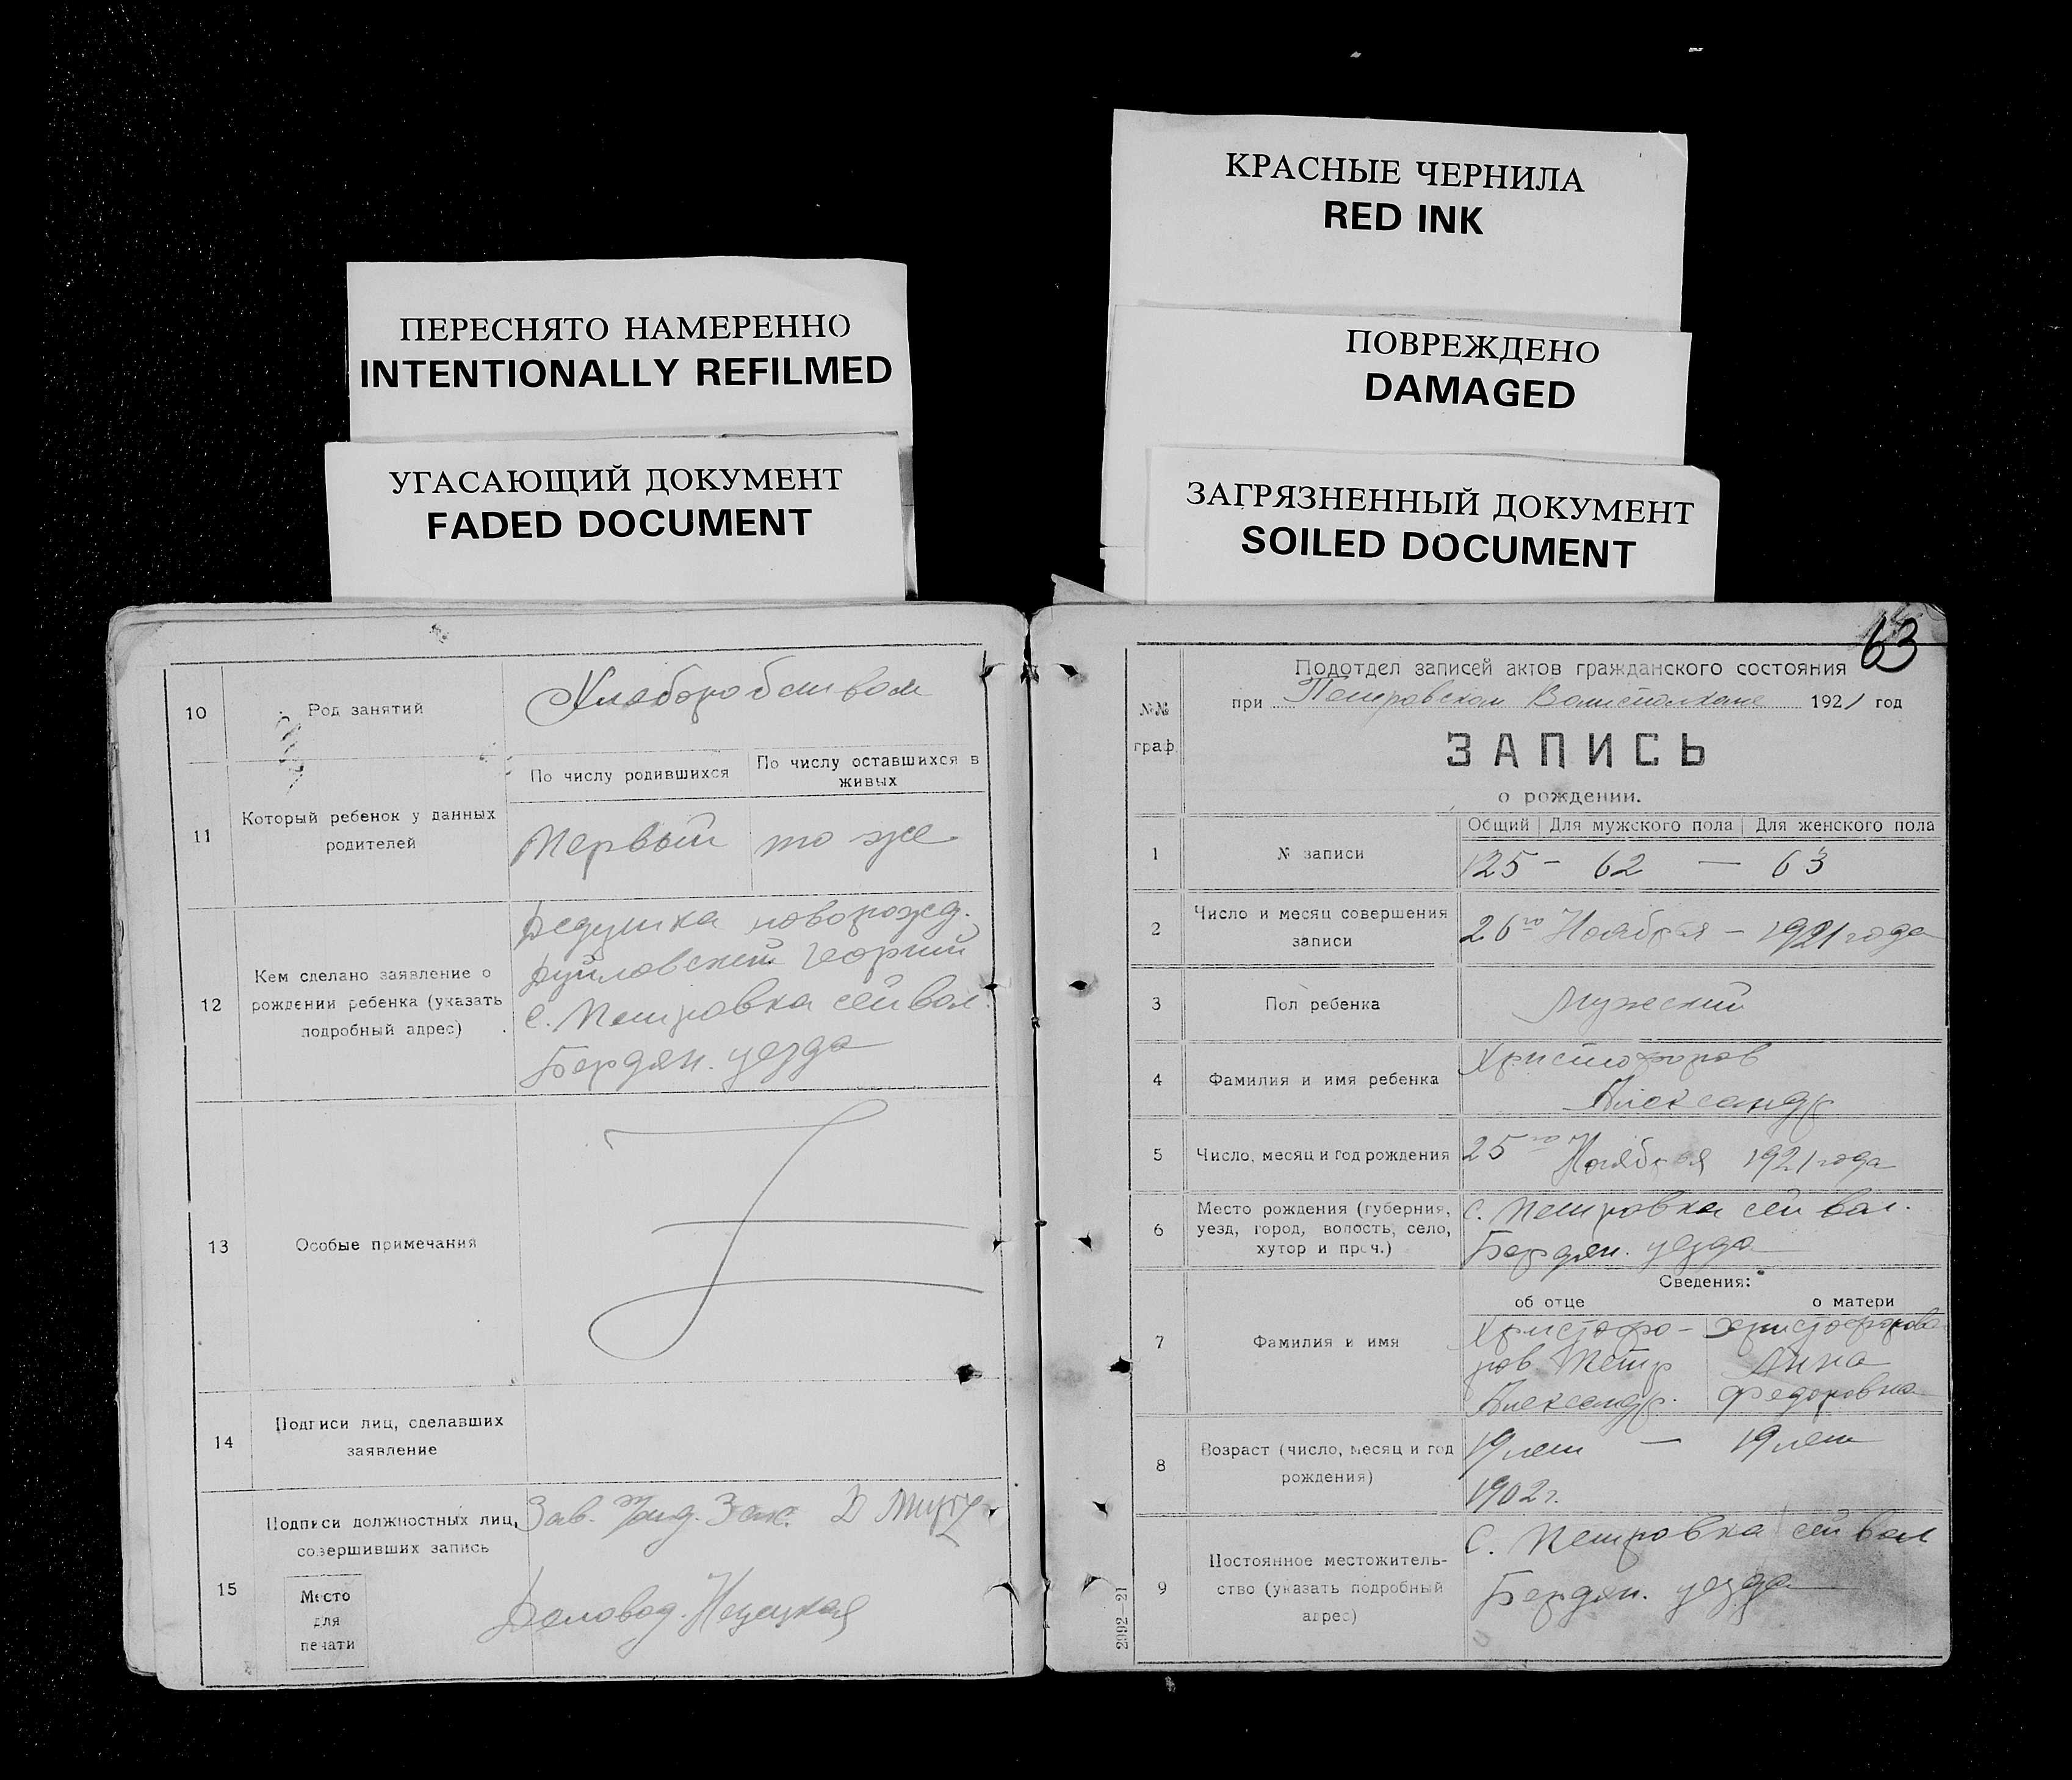 КРАСНЫЕ ЧЕРНИЛА
RED INK
ПОВРЕЖДЕНО
DAMAGED
ЗАГРЯЗНЕННЫЙ ДОКУМЕНТ
SOILED DOCUMENT
ПЕРЕСНЯТО НАМЕРЕННО
INTENTIONALLY REFILMED
УГАСАЮЩИЙ ДОКУМЕНТ
FADED DOCUMENT
10 Род занятий Хлеборобством
11 Который ребенок у данных родителей
По числу родившихся По числу оставшихся в живых
Первый то же
12 Кем сделано заявление о рождении ребенка (указать подробный адрес)
Дедушка новорожд.
Георгий
с. Петровка сей вол.
Бердян. уезда
13 Особые примечания
14 Подписи лиц, сделавших заявление
15 Подписи должностных лиц, совершивших запись
Зав.
Деловод.
Место
для
печати
63
Подотдел записей актов гражданского состояния
при Петровском Волисполкоме 1921 год
№№
граф.
ЗАПИСЬ
о рождении.
Общий Для мужского пола Для женского пола
1 № записи 125 - 62 — 63
2 Число и месяц совершения записи 26го Ноября - 1921 года
3 Пол ребенка Мужский
4 Фамилия и имя ребенка Христофоров
Александр
5 Число, месяц и год рождения 25го Ноября 1921 года
6 Место рождения (губерния, уезд, город, волость, село, хутор и проч.)
с. Петровка сей вол.
Бердян. уезда
Сведения:
об отце о матери
7 Фамилия и имя
Христофо- Христофорова
ров Петр Анна
Александр. Федоровна
8 Возраст (число, месяц и год рождения) 19 лет — 19 лет
1902 г.
9 Постоянное местожительство (указать подробный адрес)
с. Петровка сей вол
Бердян. уезда
2992—21